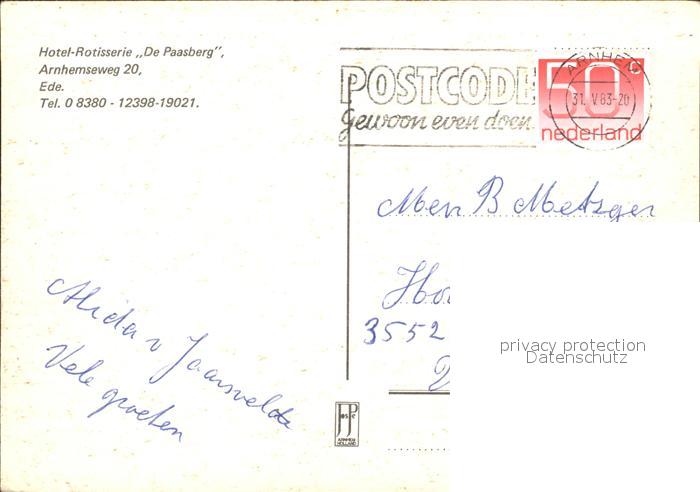 Hotel-Rotisserie „De Paasberg",
Arnhemseweg 20,
Ede.
Tel. 0 8380 - 12398-19021.
POSTCODE
gewoon even doen
ARNHEM
31. V 83-20
50 c
nederland
B Metzger
3552
privacy protection
Datenschutz
Alida v Jaarsveld
Vele groeten
ARNHEM
HOLLAND